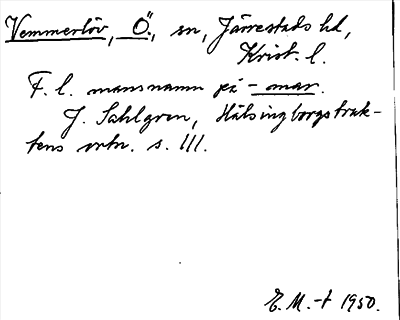 Vemmerlöv, Ö., sn, Järrestads hd,
Krist. l.
F. l. mansnamn på -mar.
J. Sahlgren, Hälsingborgstrak-
tens ortn. s. 111.
E. M.-t 1950.